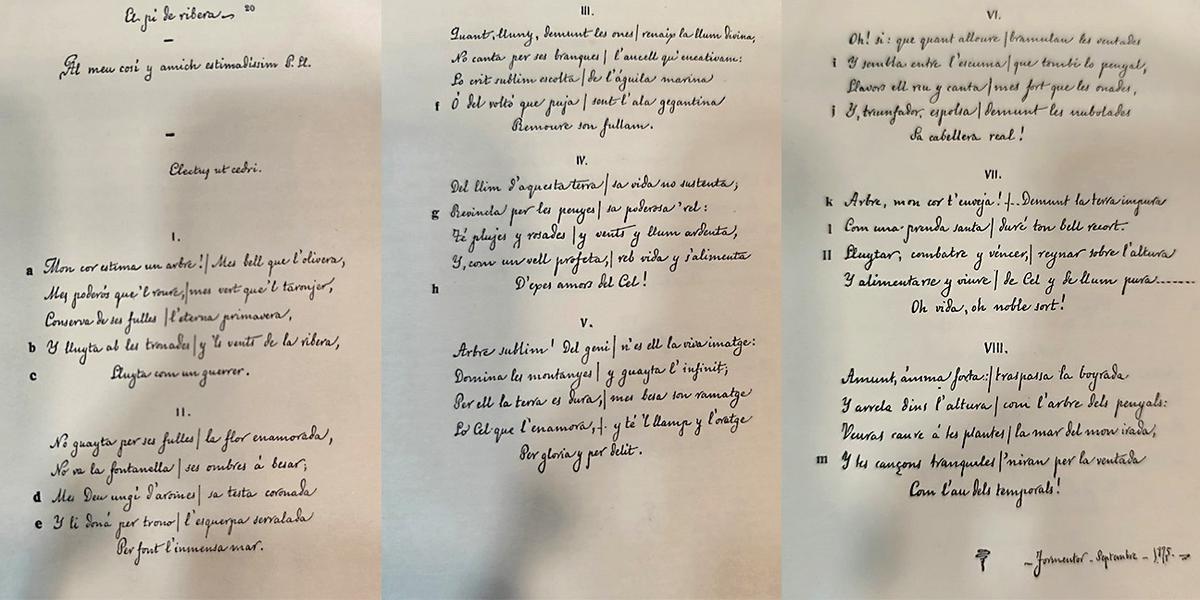 El pi de ribera 20
Al meu cosí y amich estimadissim P. Ll.
Electus ut cedri.
I.
a Mon cor estima un arbre!| Mes bell que l'olivera,
Mes poderós que'l roure,|mes vert que'l taronjer,
Conserva de ses fulles |l'eterna primavera,
b Y lluyta ab les tronades|y 'ls vents de la ribera,
c Lluyta com un guerrer.
II.
No guayta per ses fulles| la flor enamorada,
No va la fontanella| ses ombres á besar;
d Mes Deu ungí d'aromes| sa testa coronada
e Y li doná per trono| l'esquerpa serralada
Per font l'inmensa mar.
III.
Quant, lluny, demunt les ones| renaix la llum divina,
No canta per ses branques| l'aucell qu'encativam:
Lo crit sublim escolta |de l'águila marina
f Ó del voltó que puja| sent l'ala gegantina
Remoure son fullam.
IV.
Del llim d'aquesta terra| sa vida no sustenta;
g Revincla per les penyes| sa poderosa 'rel:
Té plujes y rosades |y vents y llum ardenta,
Y, com un vell profeta,| reb vida y s'alimenta
h D'exes amors del Cel!
V.
Arbre sublim! Del geni| n'es ell la viva imatge:
Domina les montanyes| y guayta l'infinit;
Per ell la terra es dura,| mes besa son ramatge
Lo Cel que l'enamora,| y té 'l llamp y l'oratge
Per gloria y per delit.
VI.
Oh! si: que quant alloure |bramulan les ventades
i Y sembla entre l'escuma |que tombi lo penyal,
Llavors ell riu y canta| mes fort que les onades,
j Y, triunfador, espolsa| demunt les nubolades
Sa cabellera real!
VII.
k Arbre, mon cor t'enveja!| Demunt la terra impura
l Com una prenda santa| duré ton bell recort.
ll Lluytar, combatre y véncer,| reynar sobre l'altura
Y alimentarse y viure| de Cel y de llum pura.......
Oh vida, oh noble sort!
VIII.
Amunt, ánima forta:| traspassa la boyrada
Y arrela dins l'altura| com l'arbre dels penyals:
Veuras caure á tes plantes| la mar del mon irada,
m Y tes cançons tranquiles|'niran per la ventada
Com l'au dels temporals!
Formentor - Septembre - 1875.